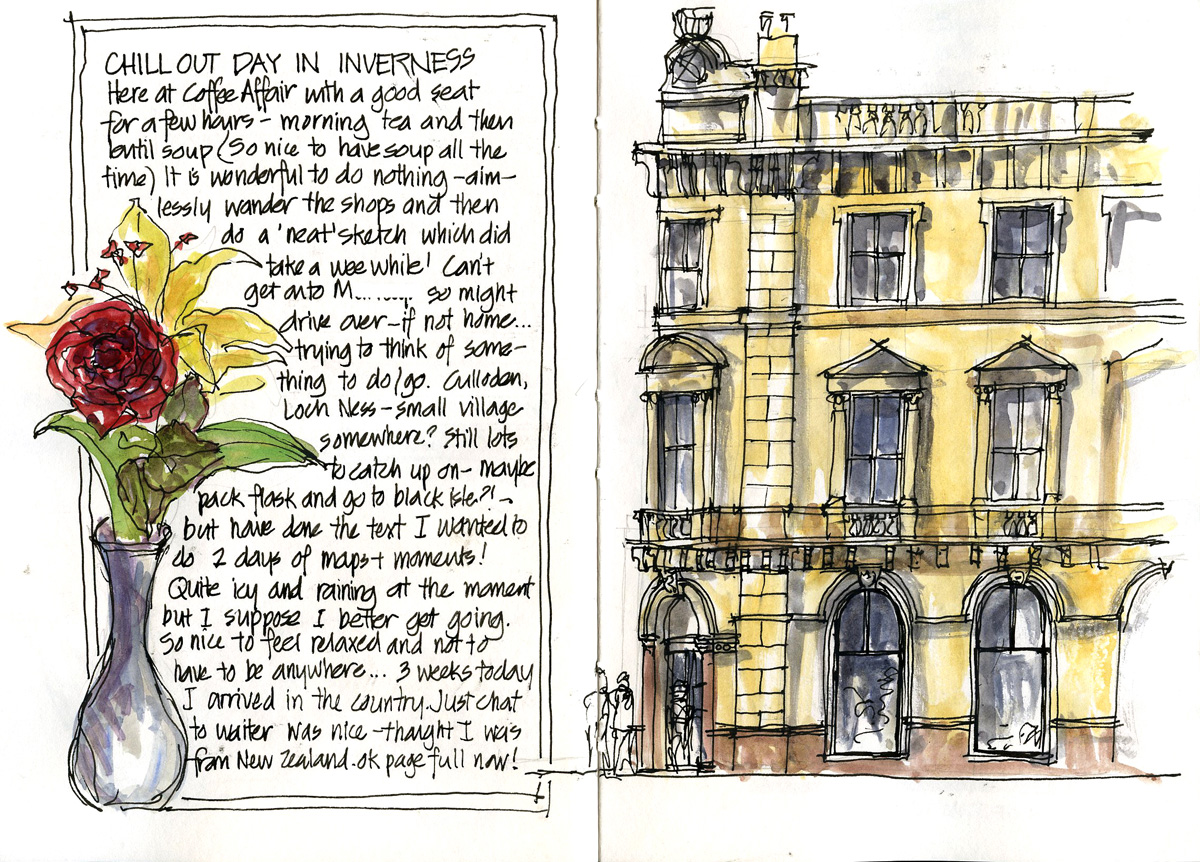 CHILL OUT DAY IN INVERNESS
Here at Coffee Affair with a good seat
for a few hours - morning tea and then
lentil soup (So nice to have soup all the
time) It is wonderful to do nothing - aim-
lessly wander the shops and then
do a 'neat' sketch which did
take a wee while! Can't
get onto so might
drive over - if not home...
trying to think of some-
thing to do/go. Culloden,
Loch Ness - small village
somewhere? Still lots
to catch up on - maybe
pack flask and go to black isle?! -
but have done the text I wanted to
do 2 days of maps + moments!
Quite icy and raining at the moment
but I suppose I better get going.
So nice to feel relaxed and not to
have to be anywhere... 3 weeks today
I arrived in the country. Just chat
to waiter was nice - thought I was
from New Zealand. ok page full now!